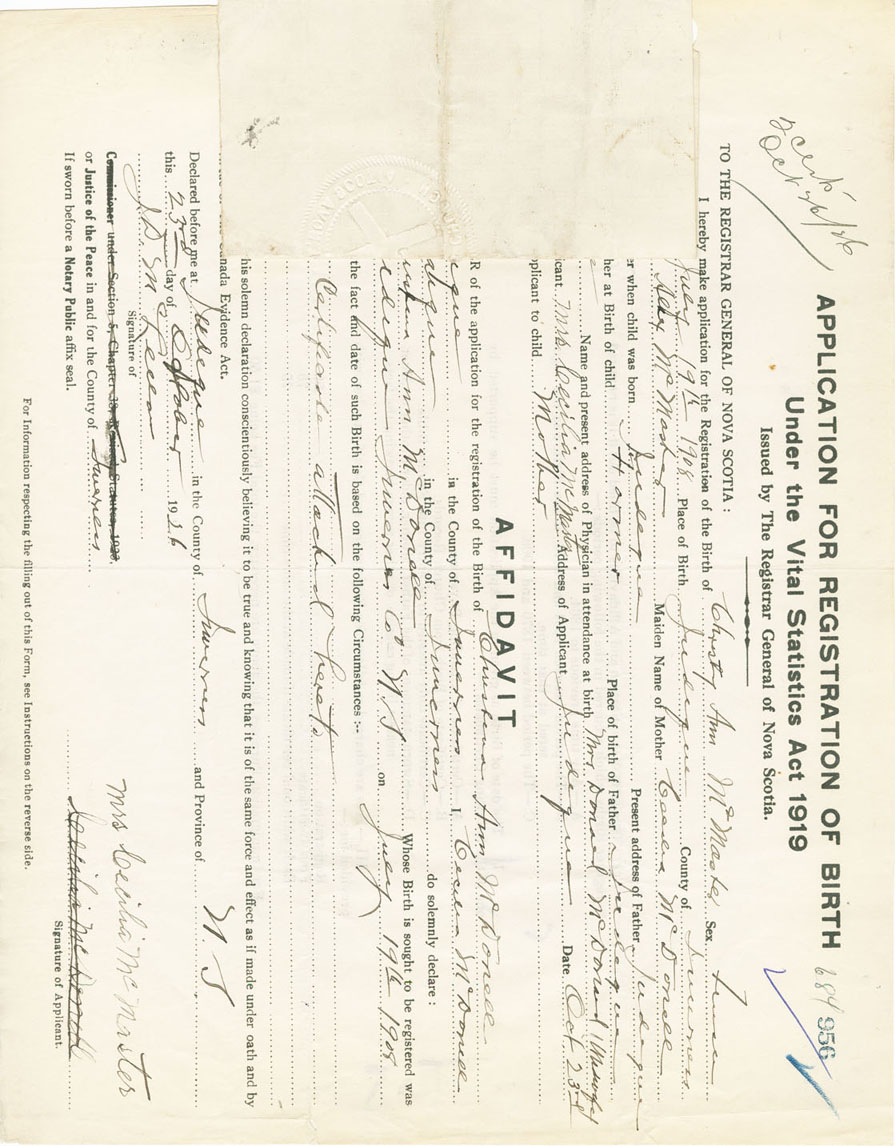 2 cert's
Oct 26/26
APPLICATION FOR REGISTRATION OF BIRTH
684 956
Under the Vital Statistics Act 1919
Issued by The Registrar General of Nova Scotia.
TO THE REGISTRAR GENERAL OF NOVA SCOTIA :
I hereby make application for the Registration of the Birth of Christy Ann McMaster Sex
July 19th 1908 Place of Birth Judique County of Inverness
McMaster Maiden Name of Mother McDonell
er when child was born Judique Present address of Father Judique
her at Birth of child Place of birth of Father Judique
Name and present address of Physician in attendance at birth Mrs Donald McDonald Midwife
icant Mrs Cecilia McMaster Address of Applicant Judique Date Oct 23rd
plicant to child Mother
AFFIDAVIT
R of the application for the registration of the Birth of Christina Ann McDonell
ique in the County of Inverness I, McDonell
in the County of Inverness do solemnly declare :
Ann McDonell Whose Birth is sought to be registered was
Inverness Co N.S on July 19th 1908
the fact and date of such Birth is based on the following Circumstances :-
Certificate attached hereto
his solemn declaration conscientiously believing it to be true and knowing that it is of the same force and effect as if made under oath and by
anada Evidence Act.
Declared before me at Judique in the County of Inverness and Province of N S
this 23rd day of October 1926
Signature of
Mrs Cecilia McMaster
Signature of Applicant.
Commissioner under Section 5, Chapter 38, Revised Statutes, 1923,
or Justice of the Peace in and for the County of Inverness
If sworn before a Notary Public affix seal.
For Information respecting the filling out of this Form, see Instructions on the reverse side.